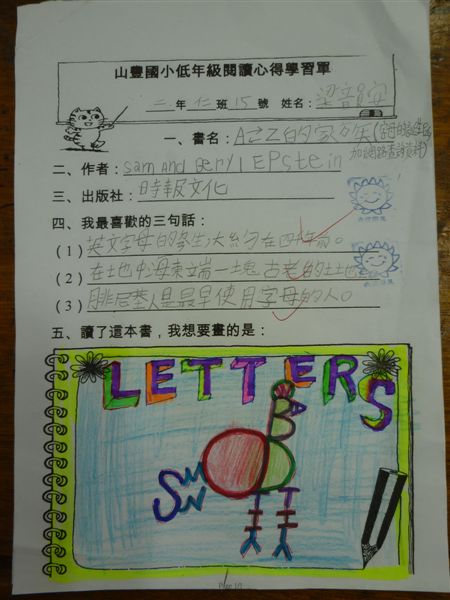 山豐國小低年級閱讀心得學習單
二年仁班15號 姓名:梁韶安
一、書名:A到Z的家族(字母的誕生
二、作者:Sam And Beryl EPstein
三、出版社:時報文化
四、我最喜歡的三句話:
(1)英文字母的誕生大約在四千年前。
(2)在地中海東端一塊古老的土地
(3)腓尼基人是最早使用字母的人。
五、讀了這本書,我想要畫的是:
LETTERS